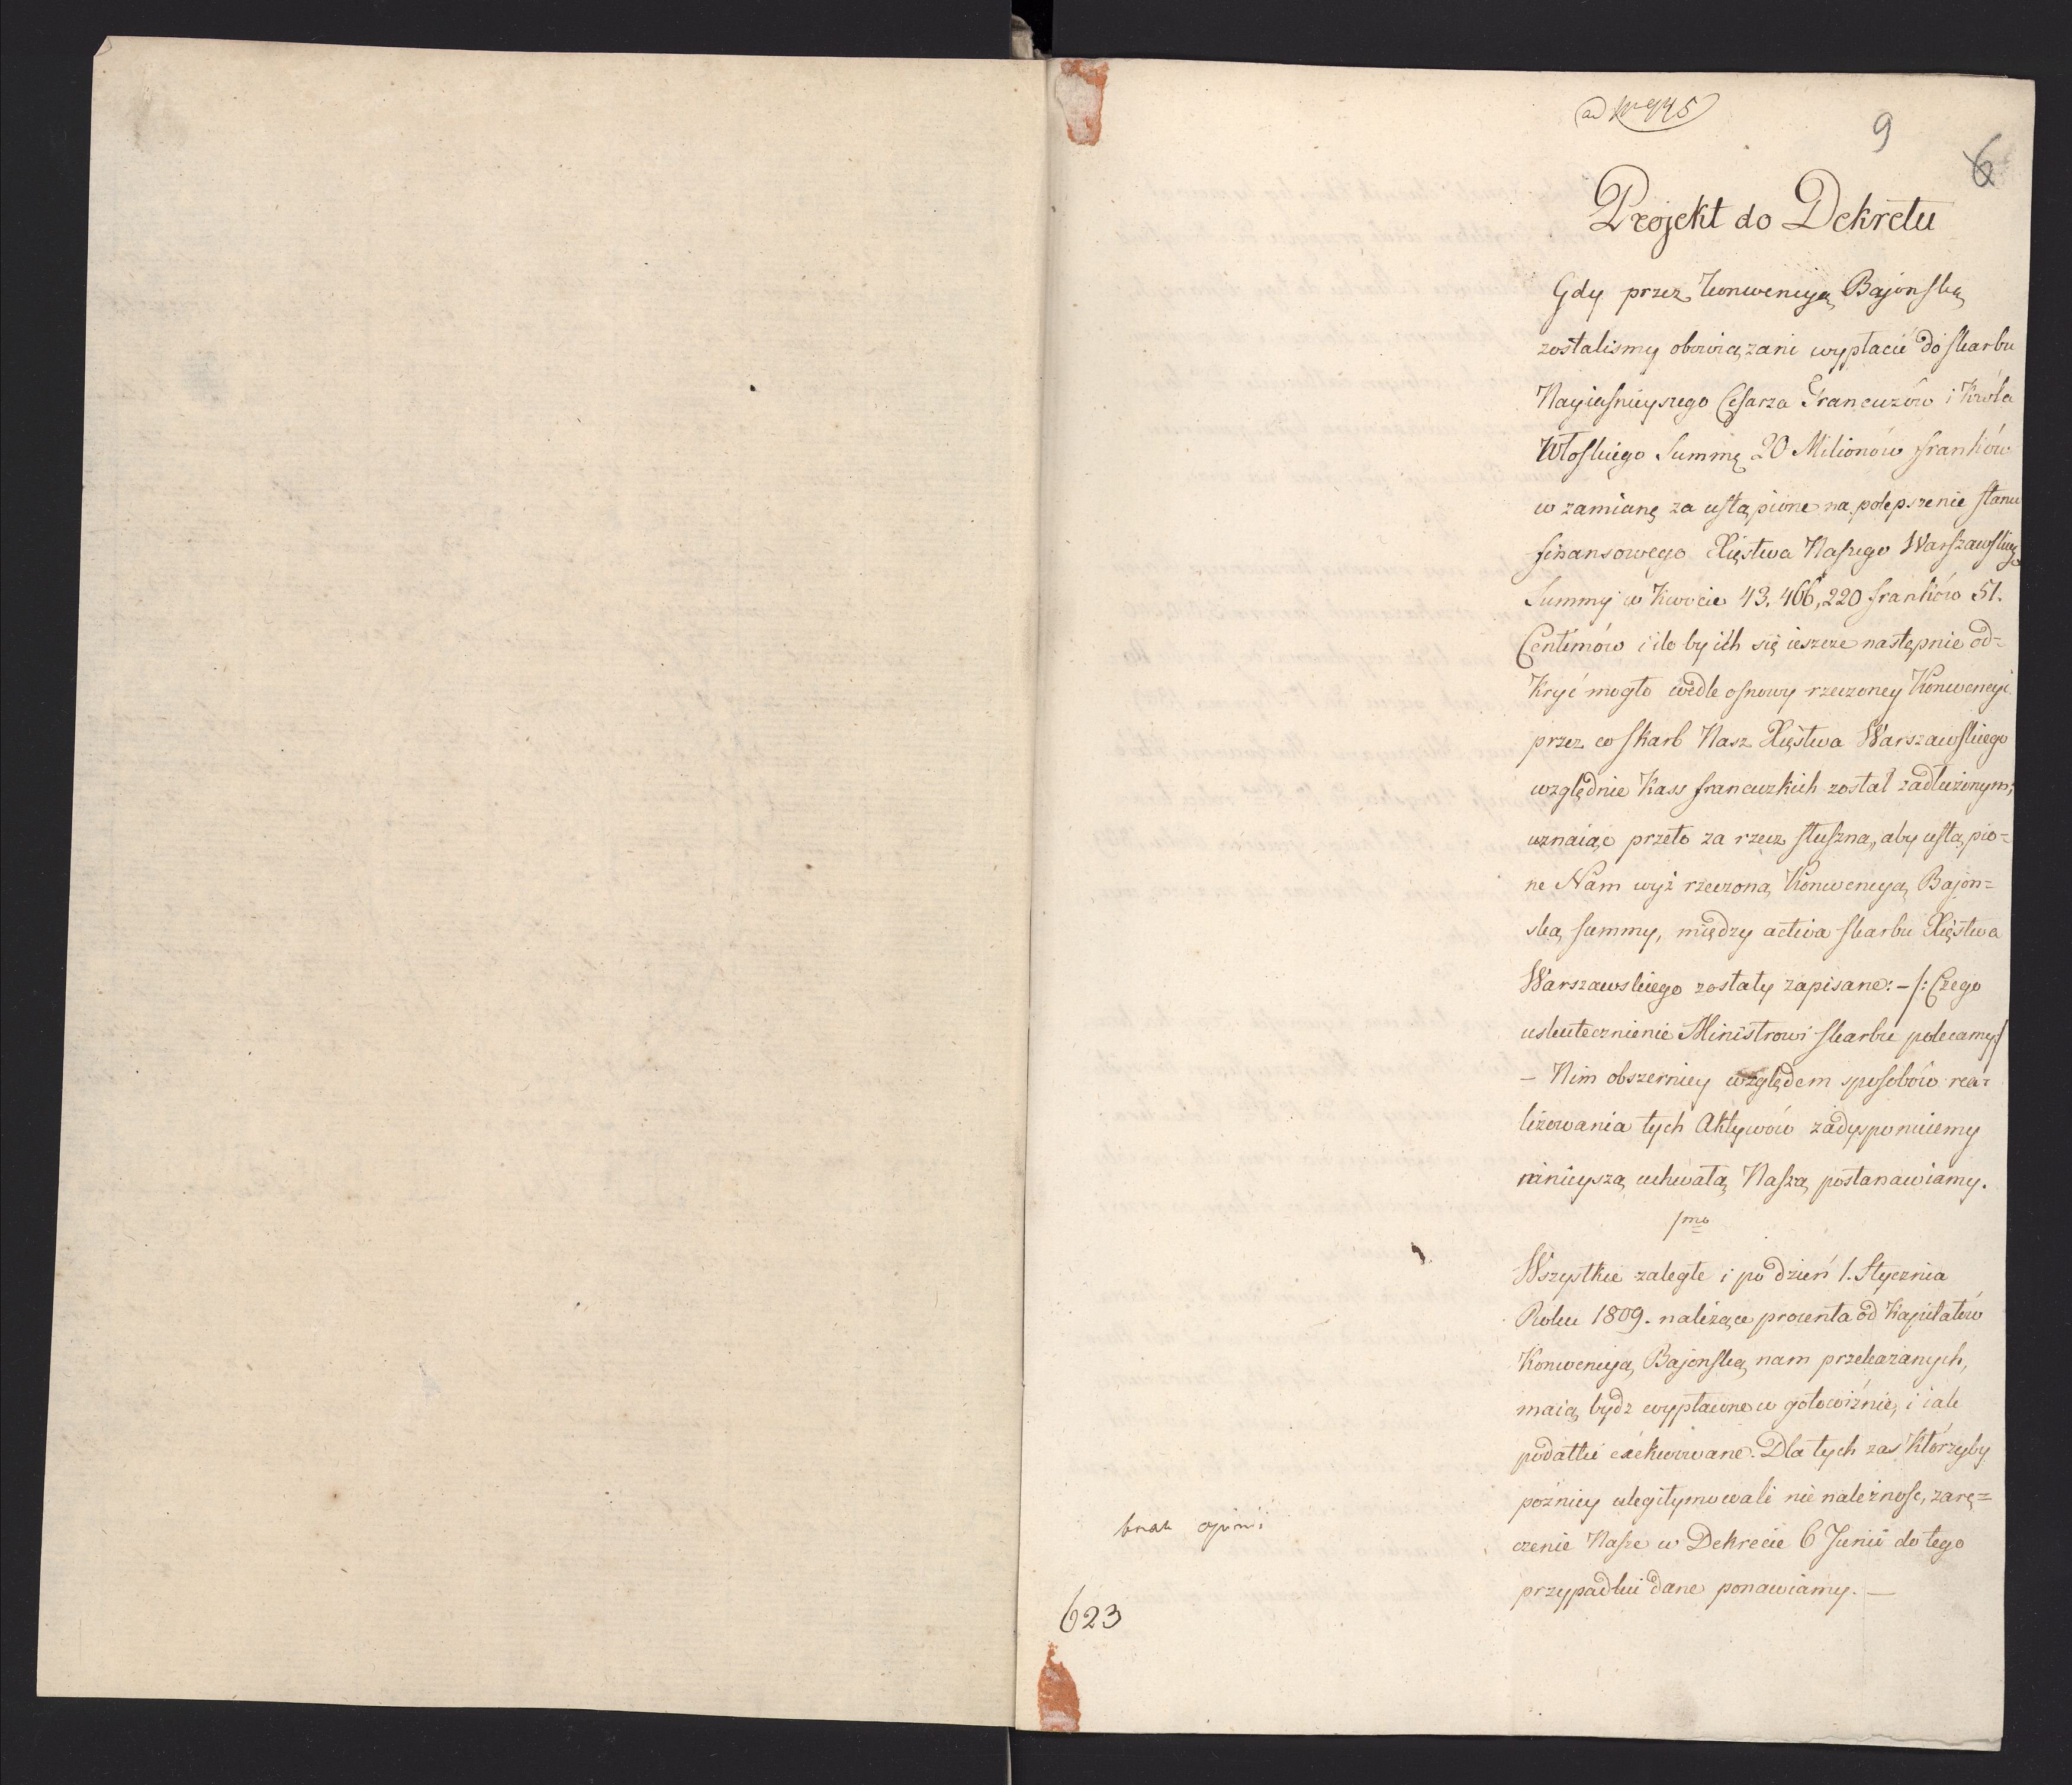 ad Nro 945
9
6
Projekt do Dekretu
Gdy przez konwencyą Bajonską
zostalismy obowiązani wypłacić do skarbu
Nayiasnieyszego Cesarza Francuzów i Króla
Włoskiego Summę 20 Milionów franków
w zamianę za ustąpione na polepszenie stanu
finansowego Xięstwa Naszego Warszawskiego
Summy w kwocie 43,466,220 franków 51.
Centimów i ile by ich się ieszcze następnie od=
kryć mogło wedle osnowy rzeczoney Konwencyi
przez co skarb Nasz Xięstwa Warszawskiego
względnie Kass francuzkich został zadłużonym;
uznaiąc przeto za rzecz słuszną, aby ustąpio=
ne Nam wyż rzeczoną Konwencyą Bajon=
ską summy, między activa skarbu Xięstwa
Warszawskiego zostały zapisane: - /: Czego
uskutecznienie Ministrowi skarbu polecamy :/
– Nim obszerniey względem sposobów rea=
lizowania tych Aktywów zadysponuiemy
ninieyszą uchwałą Naszą postanawiamy.
1mo
Wszystkie zaległe i po dzień 1. Stycznia
Roku 1809. należące procenta od Kapitałów
Konwencyą Bajonską nam przekazanych,
maią bydz wypłacone w gotowiźnie, i iak
podatki exekwowane. Dla tych zas którzyby
pozniey ulegitymowali nienależnosc, zarę=
czenie Nasze w Dekrecie 6 Junii do tego
przypadku dane ponawiamy. —
brak opinii
623